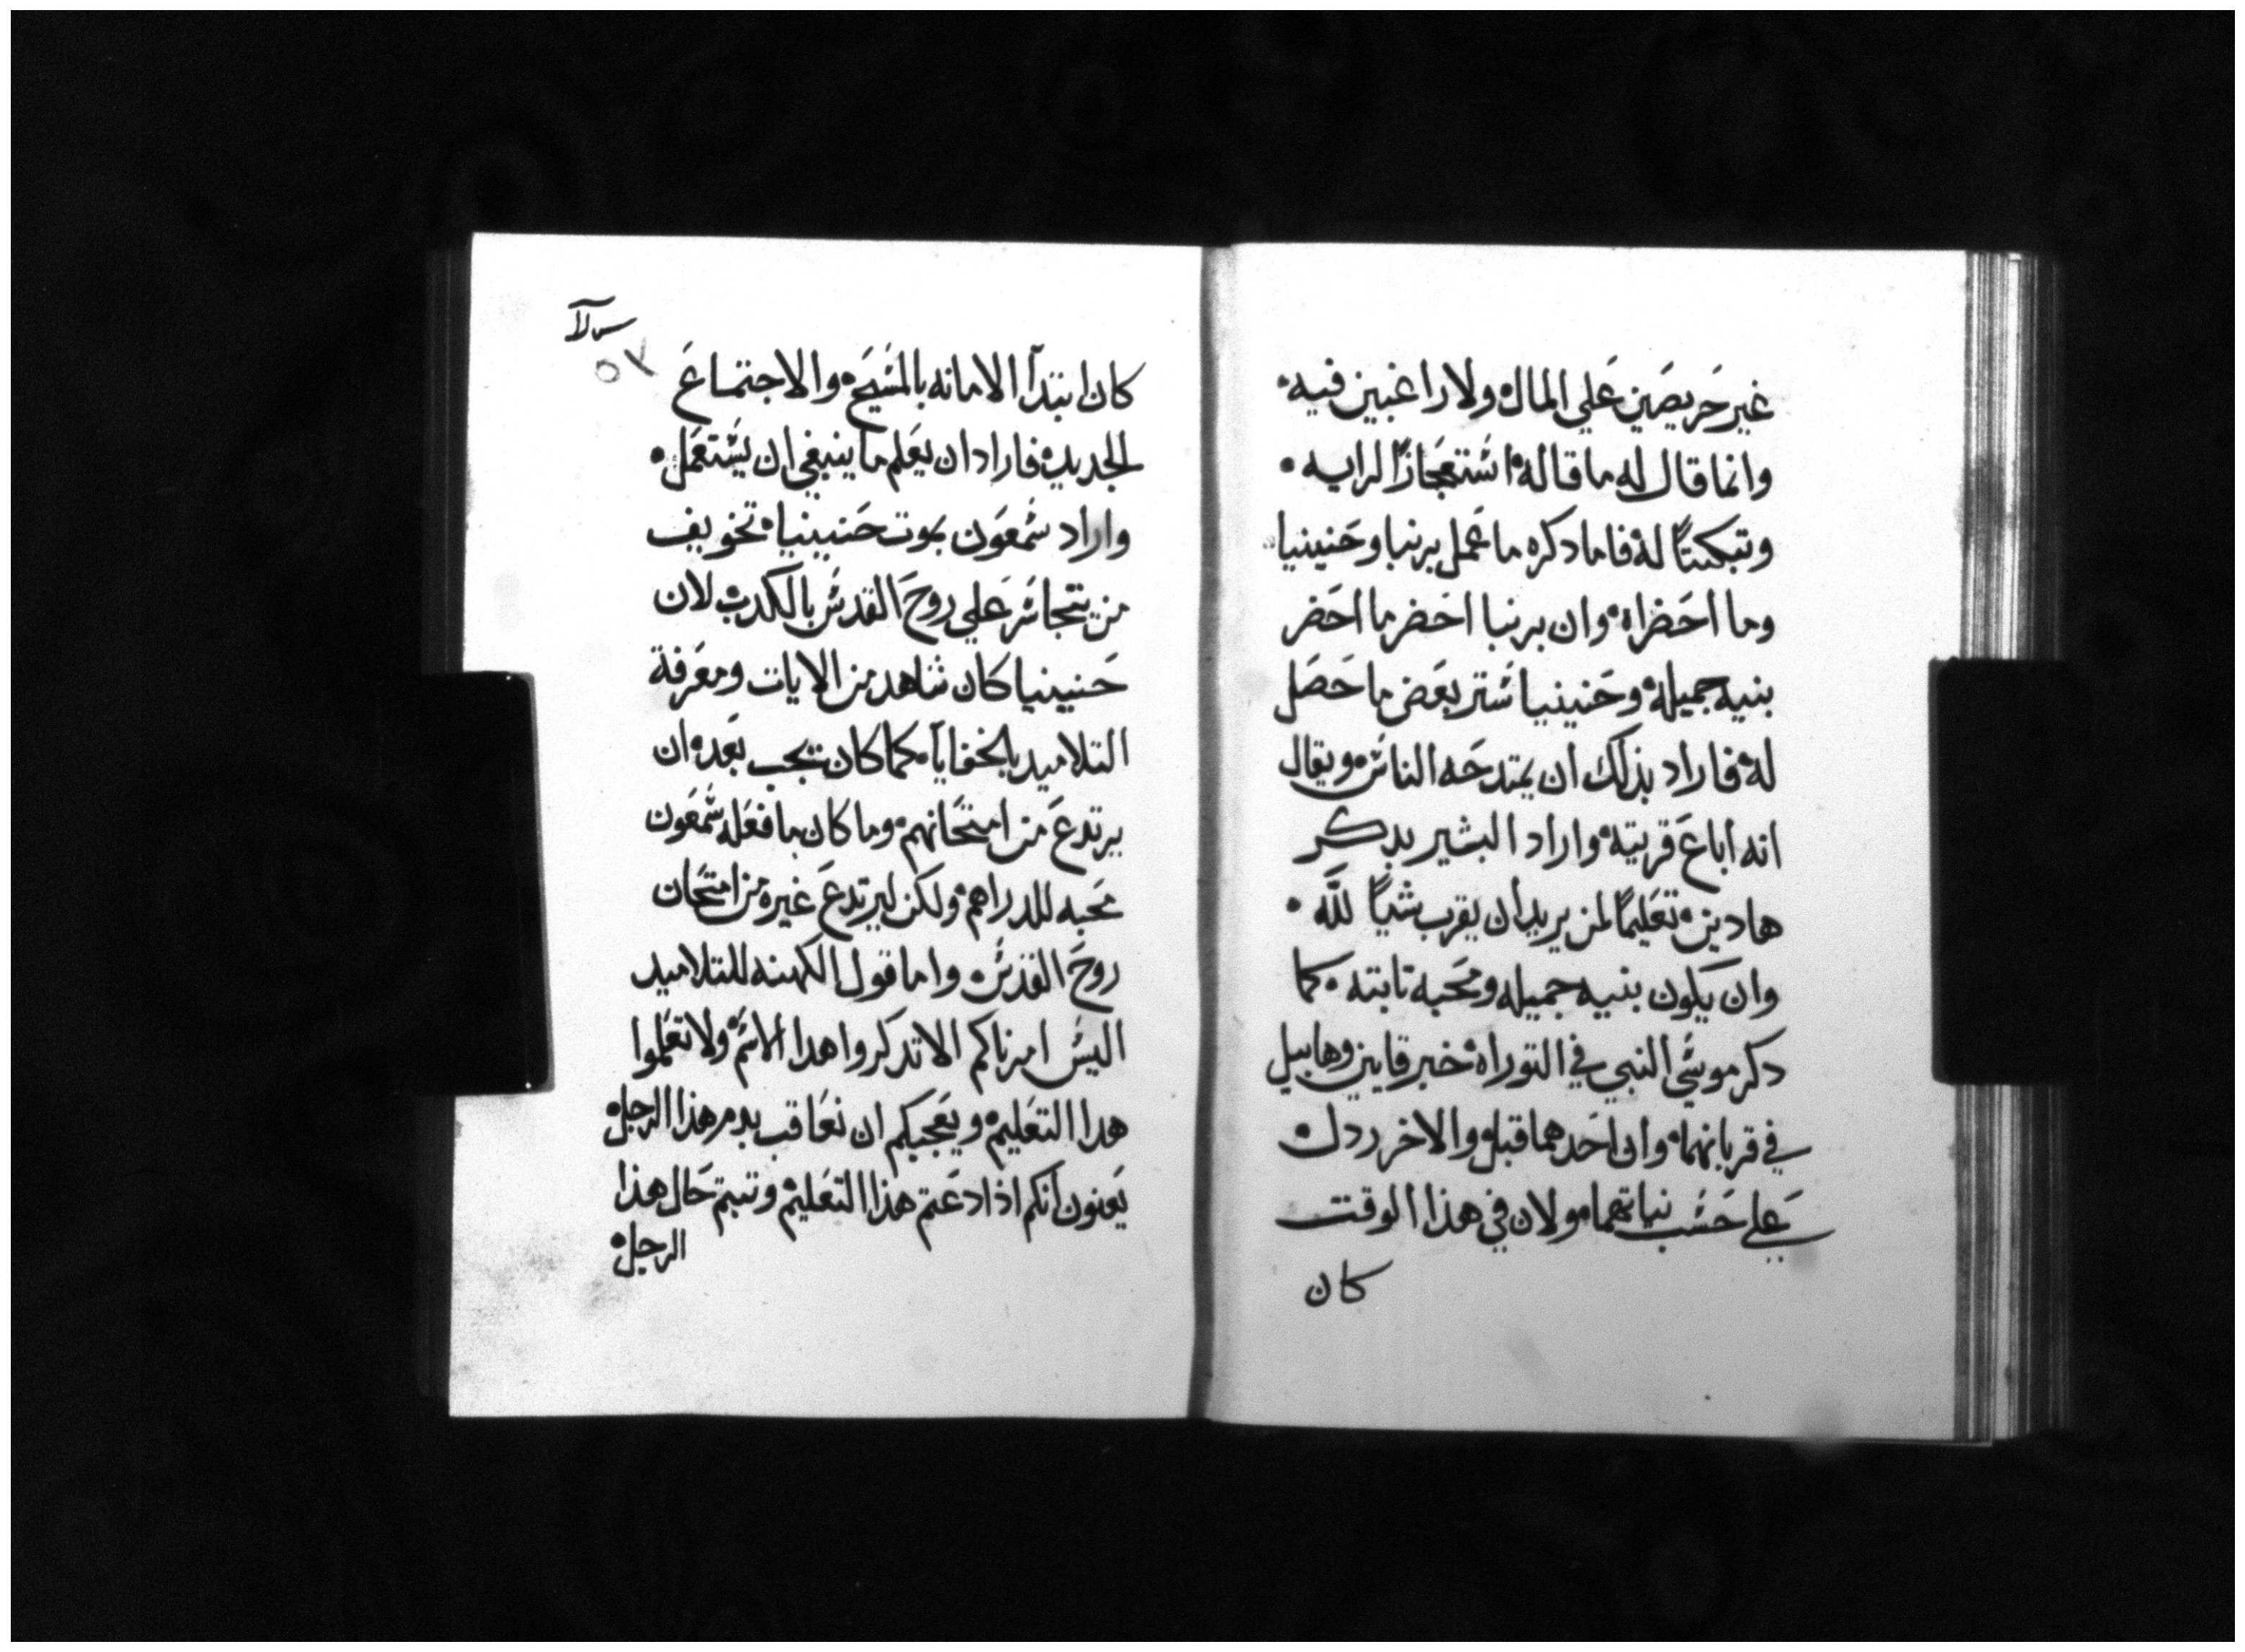 غير حريصين علي المال ولا راغبين فيه
وانما قال له ما قاله استعجازًا لرايه
وتبكيتًا له فاما دكره ما عمل برنبا وحنينيا
وما احضراه وان برنبا احضر ما احضر
بنيه جميله وحنينيا ستر بعض ما حصل
له فاراد بذلك ان يمتدحه الناس ويقال
انه اباع قريته واراد البشير بدكر
هادين تعليمًا لمن يريد ان يقرب شيًا لله
وان يكون بنيه جميله ومحبه تابته كما
دكر موسي النبي في التوراه خبر قاين وهابيل
في قربانهما وان احدهما قبل والاخر ردل
علي حسب نياتهما ولان في هذا الوقت
كان
٥٧
كان ابتدآ الامانه بالمسيح والاجتماع
الجديد فاراد ان يعلم ما ينبغي ان يستعمل
واراد شمعون بموت حنينيا تخويف
من يتجاسر علي روح القدس بالكدب لان
حنينيا كان شاهد من الايات ومعرفة
التلاميد بالخفايا كما كان يجب بعده ان
يرتدع من امتحانهم وما كان ما فعله شمعون
محبه للدراهم ولكن ليرتدع غيره من امتحان
روح القدس واما قول الكهنه للتلاميد
اليس امرناكم الا تدكروا هدا الاسم ولا تعلموا
هدا التعليم ويعجبكم ان نعاقب بدم هذا الرجل
يعنون انكم اذا دعتم هذا التعليم وتبتم حال هذا
الرجل